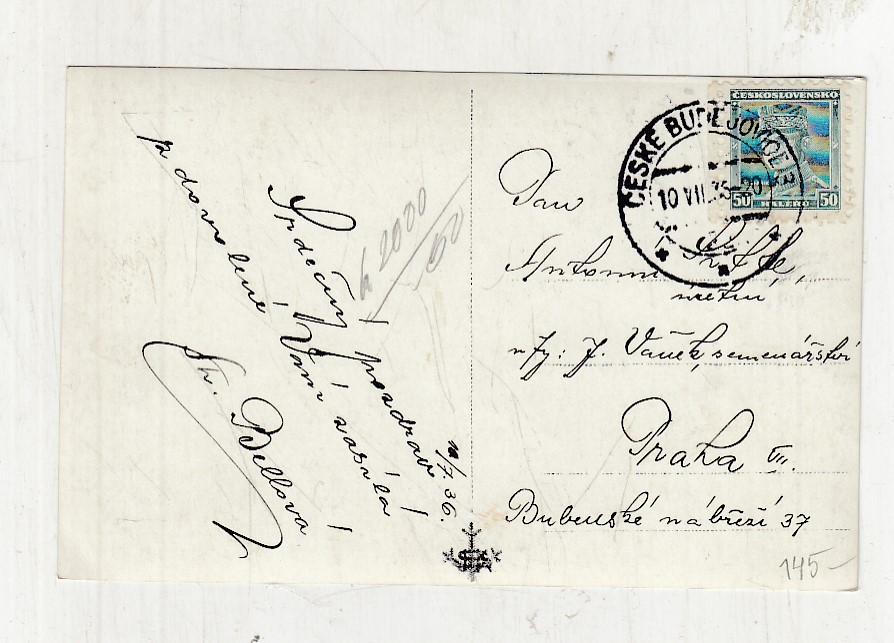 Srdečný pozdrav
z dovolené Vám zasílá
Bellova
10/7.36.
h 2000
/60
ČESKOSLOVENSKO
50 HALÉŘŮ 50
ČESKÉ BUDĚJOVICE
10 VII. 36-20
Pan
Antonín
n fy: J. Vaněk, semenářství
Praha VII.
Bubenské nábřeží 37
145-